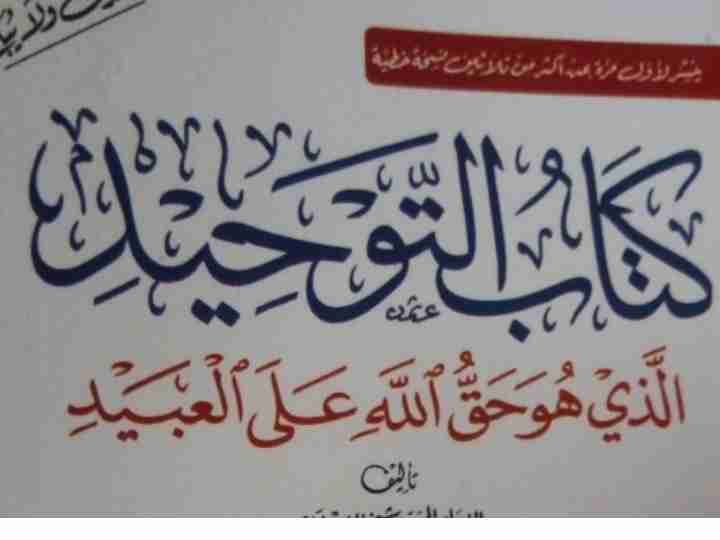 ينشر لأول مرة عن أكثر من ثلاثين نسخة خطية
كِتَابُ التَّوْحِيدِ
الَّذِي هُوَ حَقُّ ٱللَّهِ عَلَى ٱلْعَبِيْدِ
تأليف